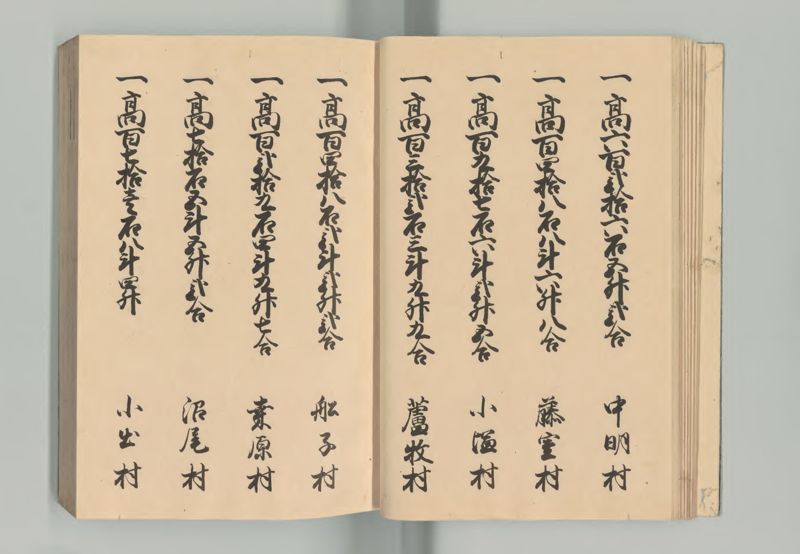 一 高六百弐拾六石五升弐合 中明村
一 高百四拾八石八斗六升八合 藤室村
一 高百九拾七石六斗弐升五合 小溢村
一 高百三拾弐石三斗九升九合 蘆牧村
一 高百四拾八石弐斗弐升弐合 船子村
一 高百弐拾九石四斗九升七合 桒原村
一 高七拾石五斗五升弐合 沼尾村
一 高百七拾壱石八斗四升 小出村